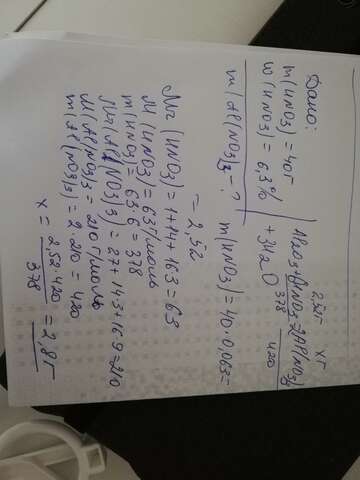 Дано:
m(HNO3) = 40г
w(HNO3) = 6,3%
m(Al(NO3)3 - ?
2,52г xг
Al2O3 + 6HNO3 = 2Al(NO3)3
378 420
+ 3H2O
m(HNO3) = 40·0,063 =
= 2,52
Mr (HNO3) = 1+14+16·3 = 63
M (HNO3) = 63 г/моль
m(HNO3) = 63·6 = 378
Mr(Al(NO3)3 = 27+14·3+16·9 = 210
M(Al(NO3)3 = 210 г/моль
m(Al(NO3)3) = 2·210 = 420
x = 2,52·420 = 2,8г
378